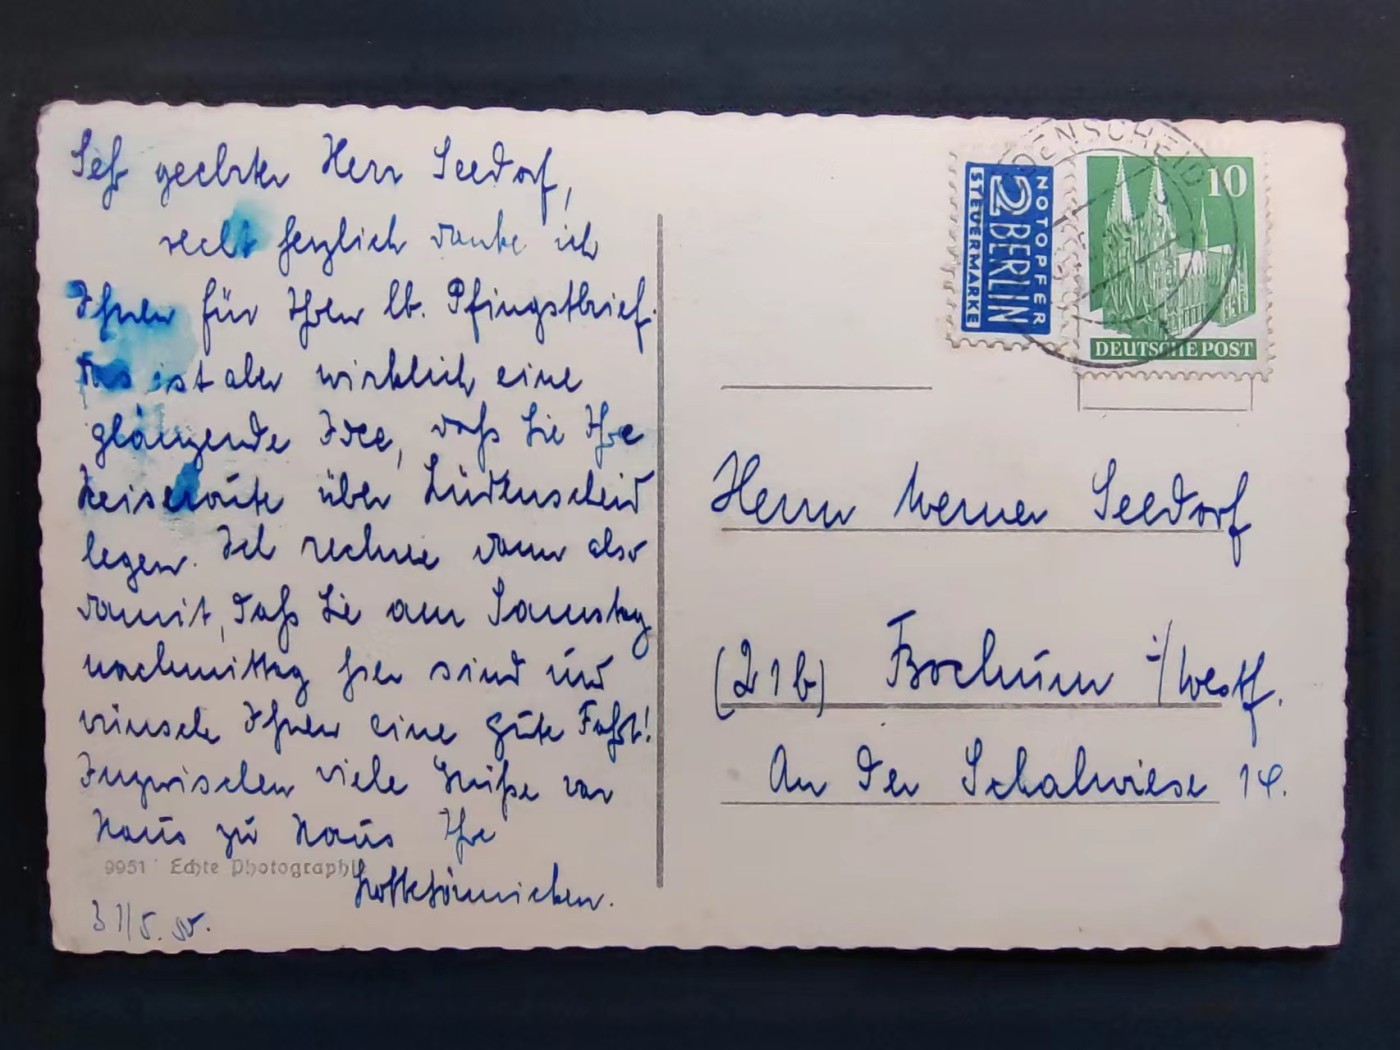 Sehr geehrter Herr Seedorf,
recht herzlich danke ich
Ihnen für Ihren lb. Pfingstbrief.
Das ist aber wirklich eine
glänzende Idee, daß Sie Ihre
Reiseroute über Lüdenscheid
legen. Ich rechne dann also
damit, daß Sie am Samstag
nachmittag hier sind und
wünsche Ihnen eine gute Fahrt!
Inzwischen viele Grüße von
Haus zu Haus Ihr
9951 Echte Photographie
31/5.
NOTOPFER
2 BERLIN
STEUERMARKE
LÜDENSCHEID
10
DEUTSCHE POST
Herrn Werner Seedorf
(21b) Bochum i/Westf.
An der Schalwiese 14.